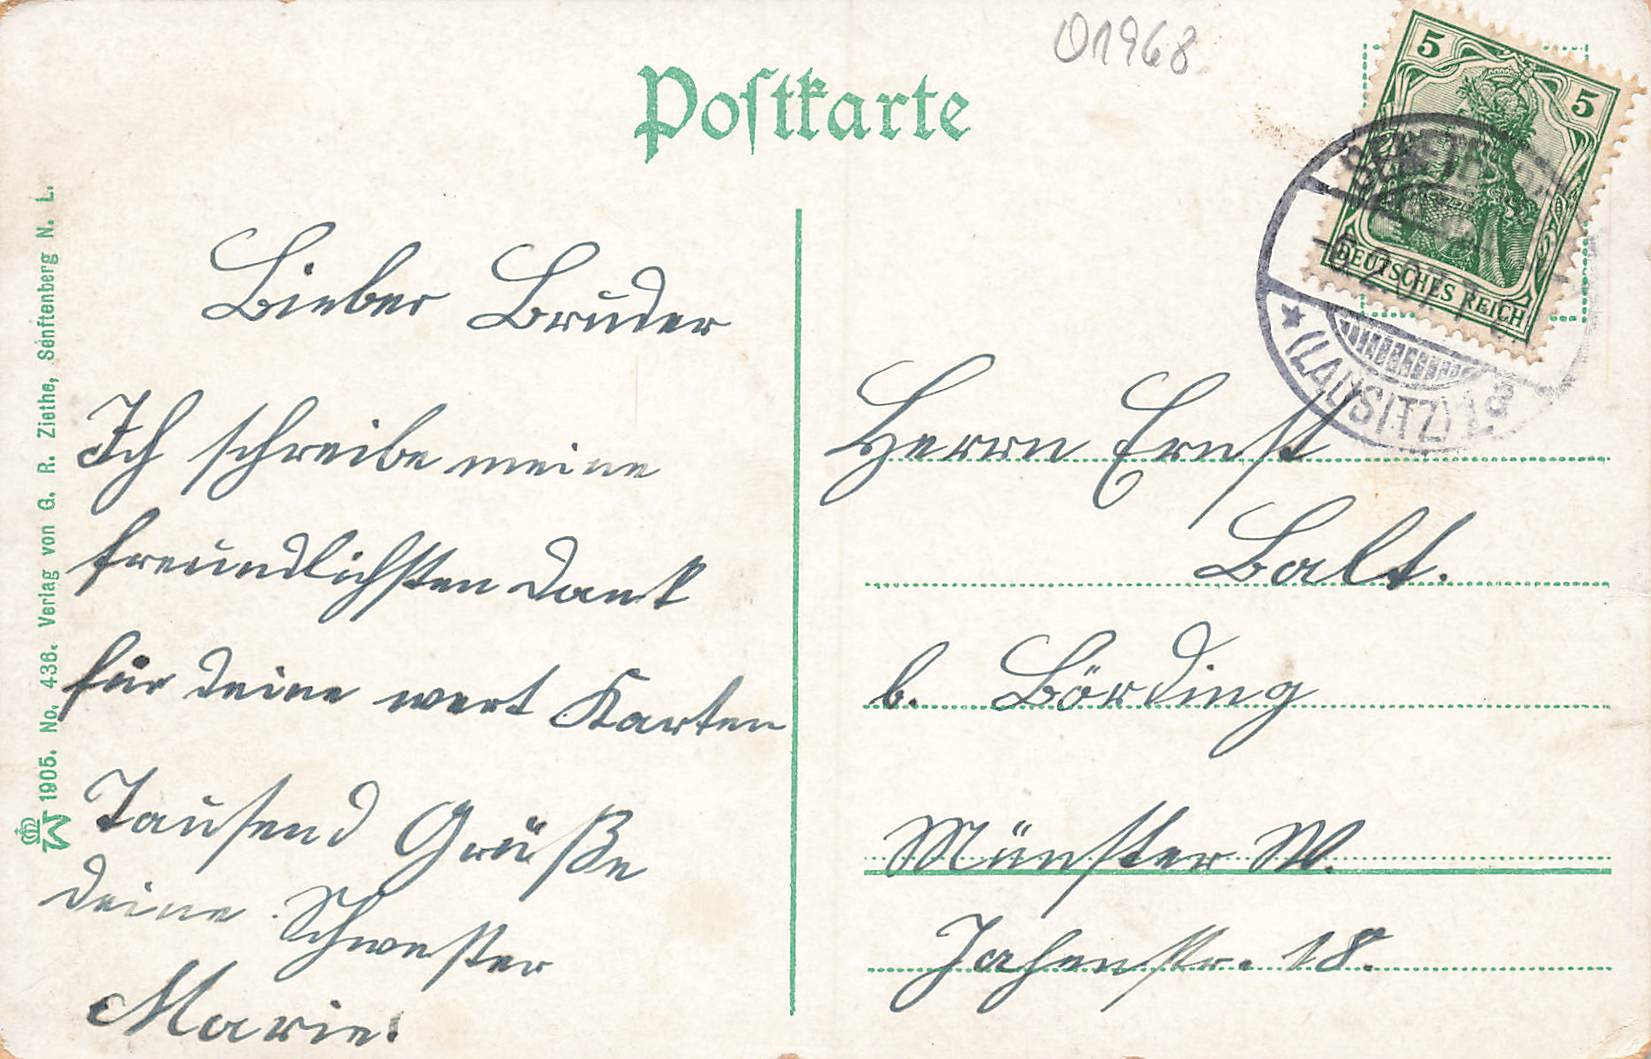 01968
Postkarte
5 5
DEUTSCHES REICH
(LAUSITZ) 1a
Lieber Bruder
Ich schreibe meine
freundlichsten Dank
für deine wert Karten
Tausend Grüße
deine Schwester
Marie.
Herrn Ernst
Balt.
b. Börding
Münster W.
Jahenstr. 18.
1905. No. 436. Verlag von G. R. Ziethe, Senftenberg N. L.